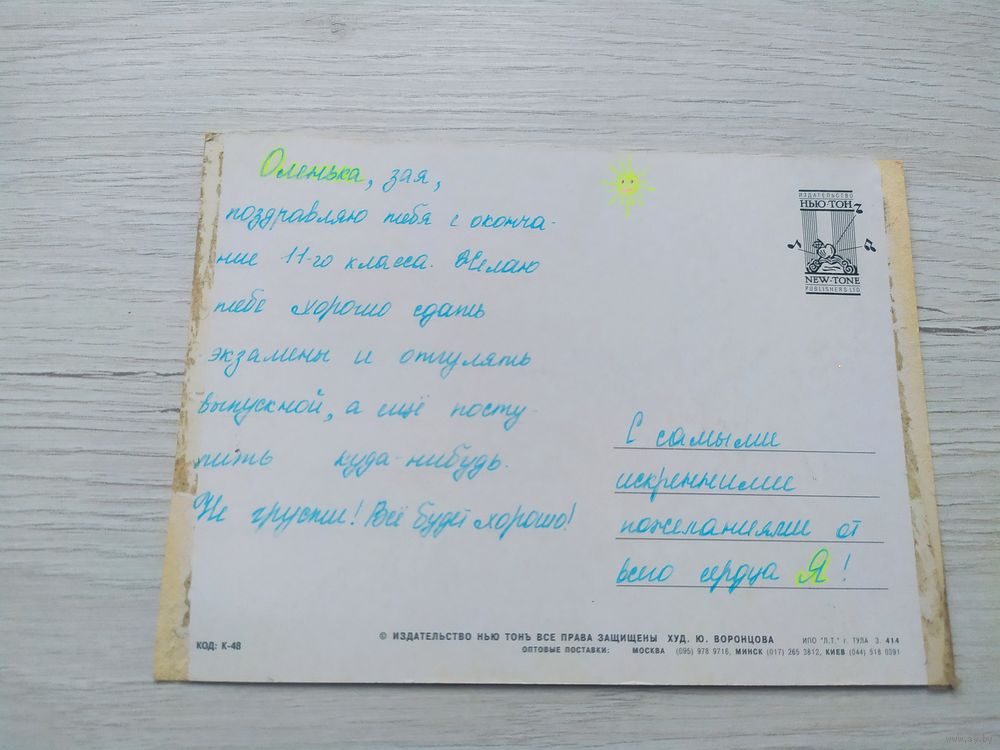 Оленька, зая,
поздравляю тебя с оконча-
ние 11-го класса. Желаю
тебе хорошо сдать
экзамены и отгулять
выпускной, а ещё посту-
пить куда-нибудь.
Не грусти! Всё будет хорошо!
ИЗДАТЕЛЬСТВО
НЬЮ-ТОН
NEW-TONE
PUBLISHERS LTD
С самыми
искренними
пожеланиями от
всего сердца Я!
КОД: К-48
© ИЗДАТЕЛЬСТВО НЬЮ ТОНЪ ВСЕ ПРАВА ЗАЩИЩЕНЫ ХУД. Ю. ВОРОНЦОВА
ИПО "Л.Т." г. ТУЛА З. 414
ОПТОВЫЕ ПОСТАВКИ: МОСКВА (095) 978 9716, МИНСК (017) 265 3812, КИЕВ (044) 518 0391
www.ay.by